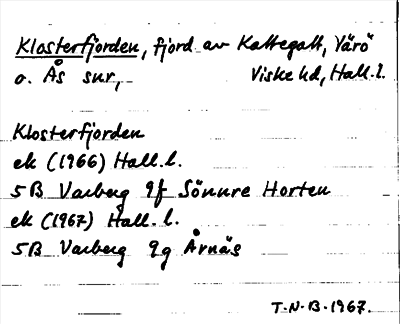 Klosterfjorden, fjord av Kattegatt, Värö
o. Ås snr, Viske hd, Hall.l.
Klosterfjorden
ek (1966) Hall.l.
5B Varberg 9f Sönnre Horten
ek (1967) Hall.l.
5B Varberg 9g Årnäs
T.N.B.1967.